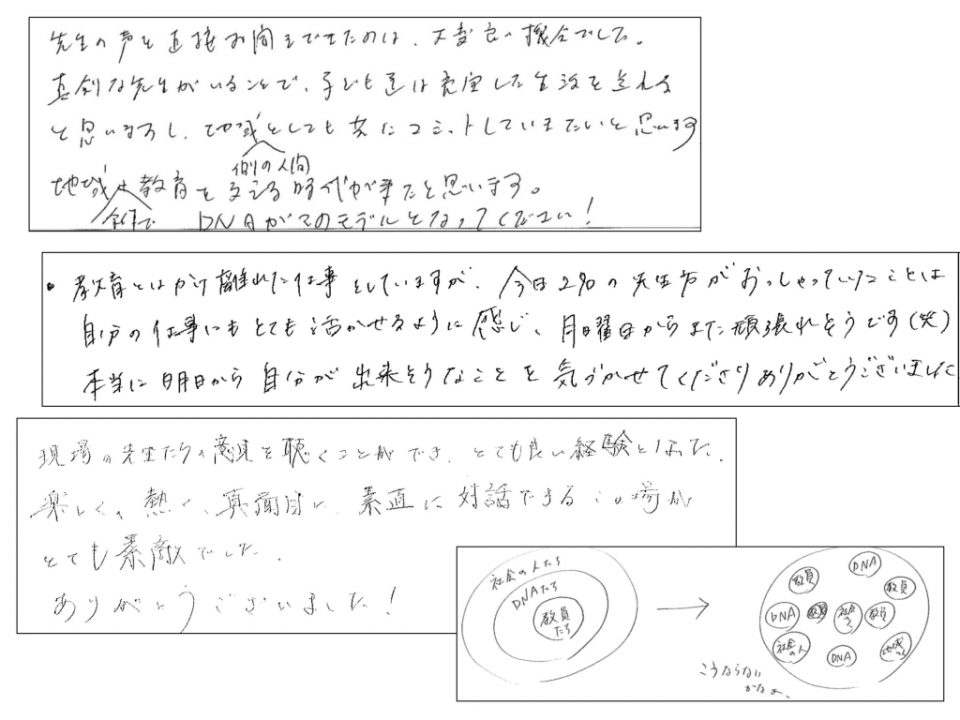 先生の声を直接お聞きできたのは、大変良い機会でした。
真剣な先生がいることで、子ども達は充実した生活を送れる
と思いますし、地域としても共にコミットしていきたいと思います
側の人間
地域 教育を支える時代が来たと思います。
全体で DNAがそのモデルとなってください!
・教育とはかけ離れた仕事をしていますが、今日2名の先生方がおっしゃっていたことは
自分の仕事にもとても活かせるように感じ、月曜日からまた頑張れそうです(笑)
本当に明日から自分が出来そうなことを気づかせてくださりありがとうございました
現場の先生たちの意見を聴くことができ、とても良い経験となった。
楽しく、熱く、真面目に、素直に対話できるこの場が
とても素敵でした。
ありがとうございました!
社会の人たち
DNAたち
教員たち
教員
DNA
教員
DNA
教員
社会
教員
社会の人
DNA
地域
こうならないかなぁ。